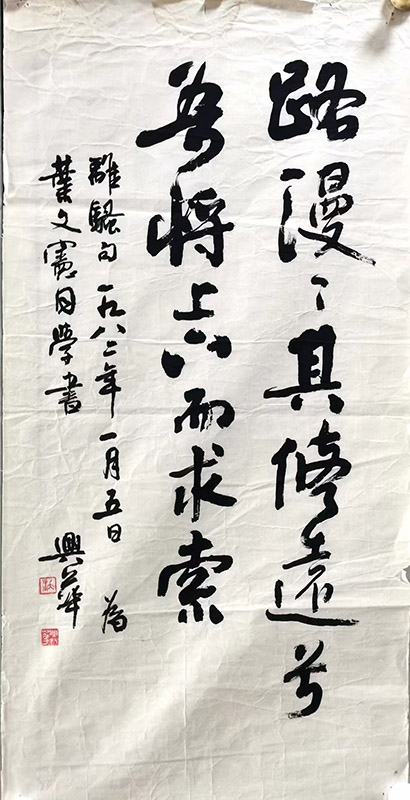 路漫〻其修遠兮
吾將上下而求索
離騷句 一九八二年一月五日 為
葉文憲同學書
興華